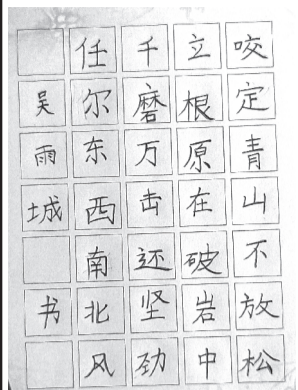 咬定青山不放松
立根原在破岩中
千磨万击还坚劲
任尔东西南北风
吴雨城书